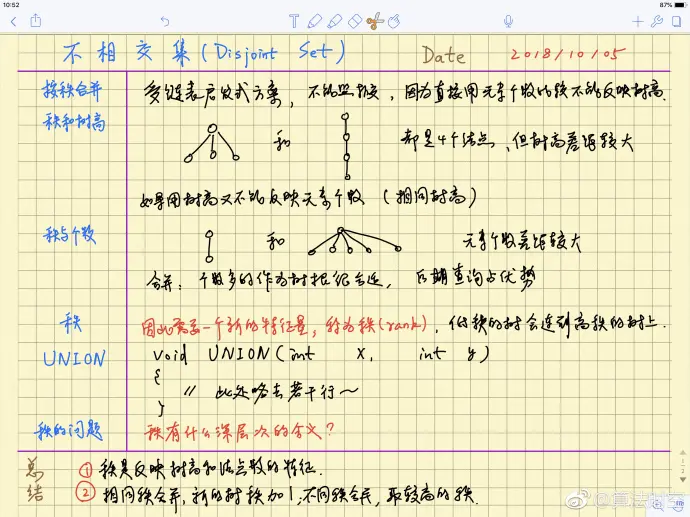 10:52
87%
不相交集(Disjoint Set) Date 2018/10/05
按秩合并 受链表启发式方案，不能照搬，因为直接用元素个数比较不能反映树高.
秩和树高 和 都是4个结点，但树高差距较大
如果用树高又不能反映元素个数 (相同树高)
秩与个数 和 元素个数差距较大
合并：个数多的作为树根很合适，后期查询占优势
秩 因此需要一个新的特征量，称为秩(rank)，低秩的树会连到高秩的树上.
UNION void UNION(int x, int y)
{
// 此处略去若干行～
}
秩的问题 秩有什么深层次的含义？
总结 ① 秩是反映树高和结点数的特征.
② 相同秩合并，新的树秩加1；不同秩合并，取较高的秩.
@算法时空